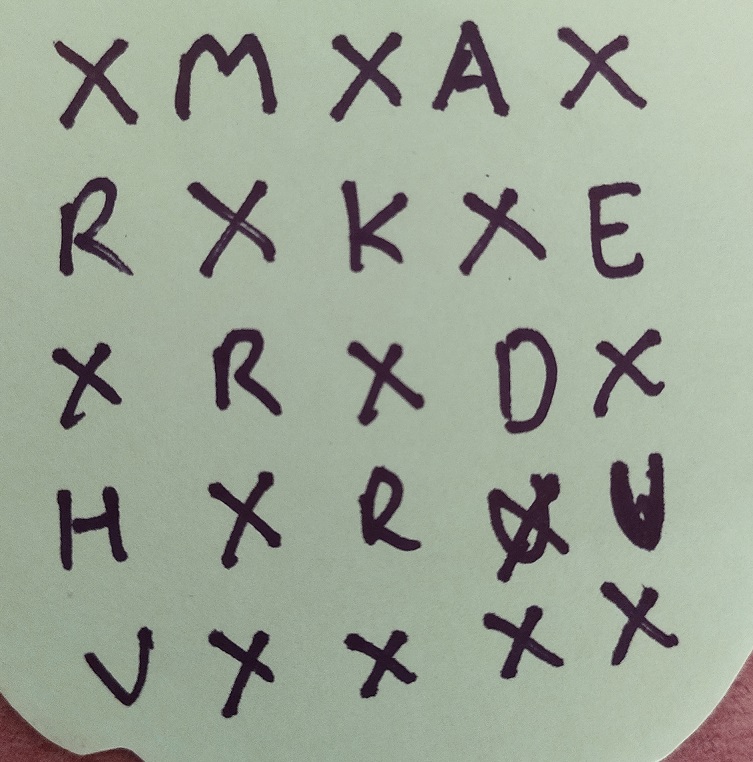 X M X A X
R X K X E
X R X D X
H X R X
V X X X X